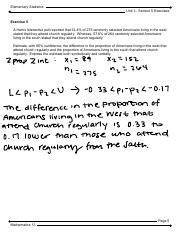 Elementary Statistics
Unit 5 - Section 5 Exercises
Exercise 5
A Harris Interactive poll reported that 32.4% of 275 randomly selected Americans living in the west
stated that they attend church regularly. Whereas, 57.6% of 264 randomly selected Americans
living in the south stated that they attend church regularly.
Estimate, with 95% confidence, the difference in the proportion of Americans living in the west that
attend church regularly and the proportion of Americans living in the south that attend church
regularly. Express the estimate both symbolically and verbally.
2 prop Z int:
x₁ = 89 x₂ = 152
n₁ = 275 n₂ = 264
L < p₁ - p₂ < U
The difference in the proportion of
Americans living in the West that
attend church regularly is 0.33 to
0.17 lower than those who attend
church regularly from the south.
Mathematics 13
Page 5